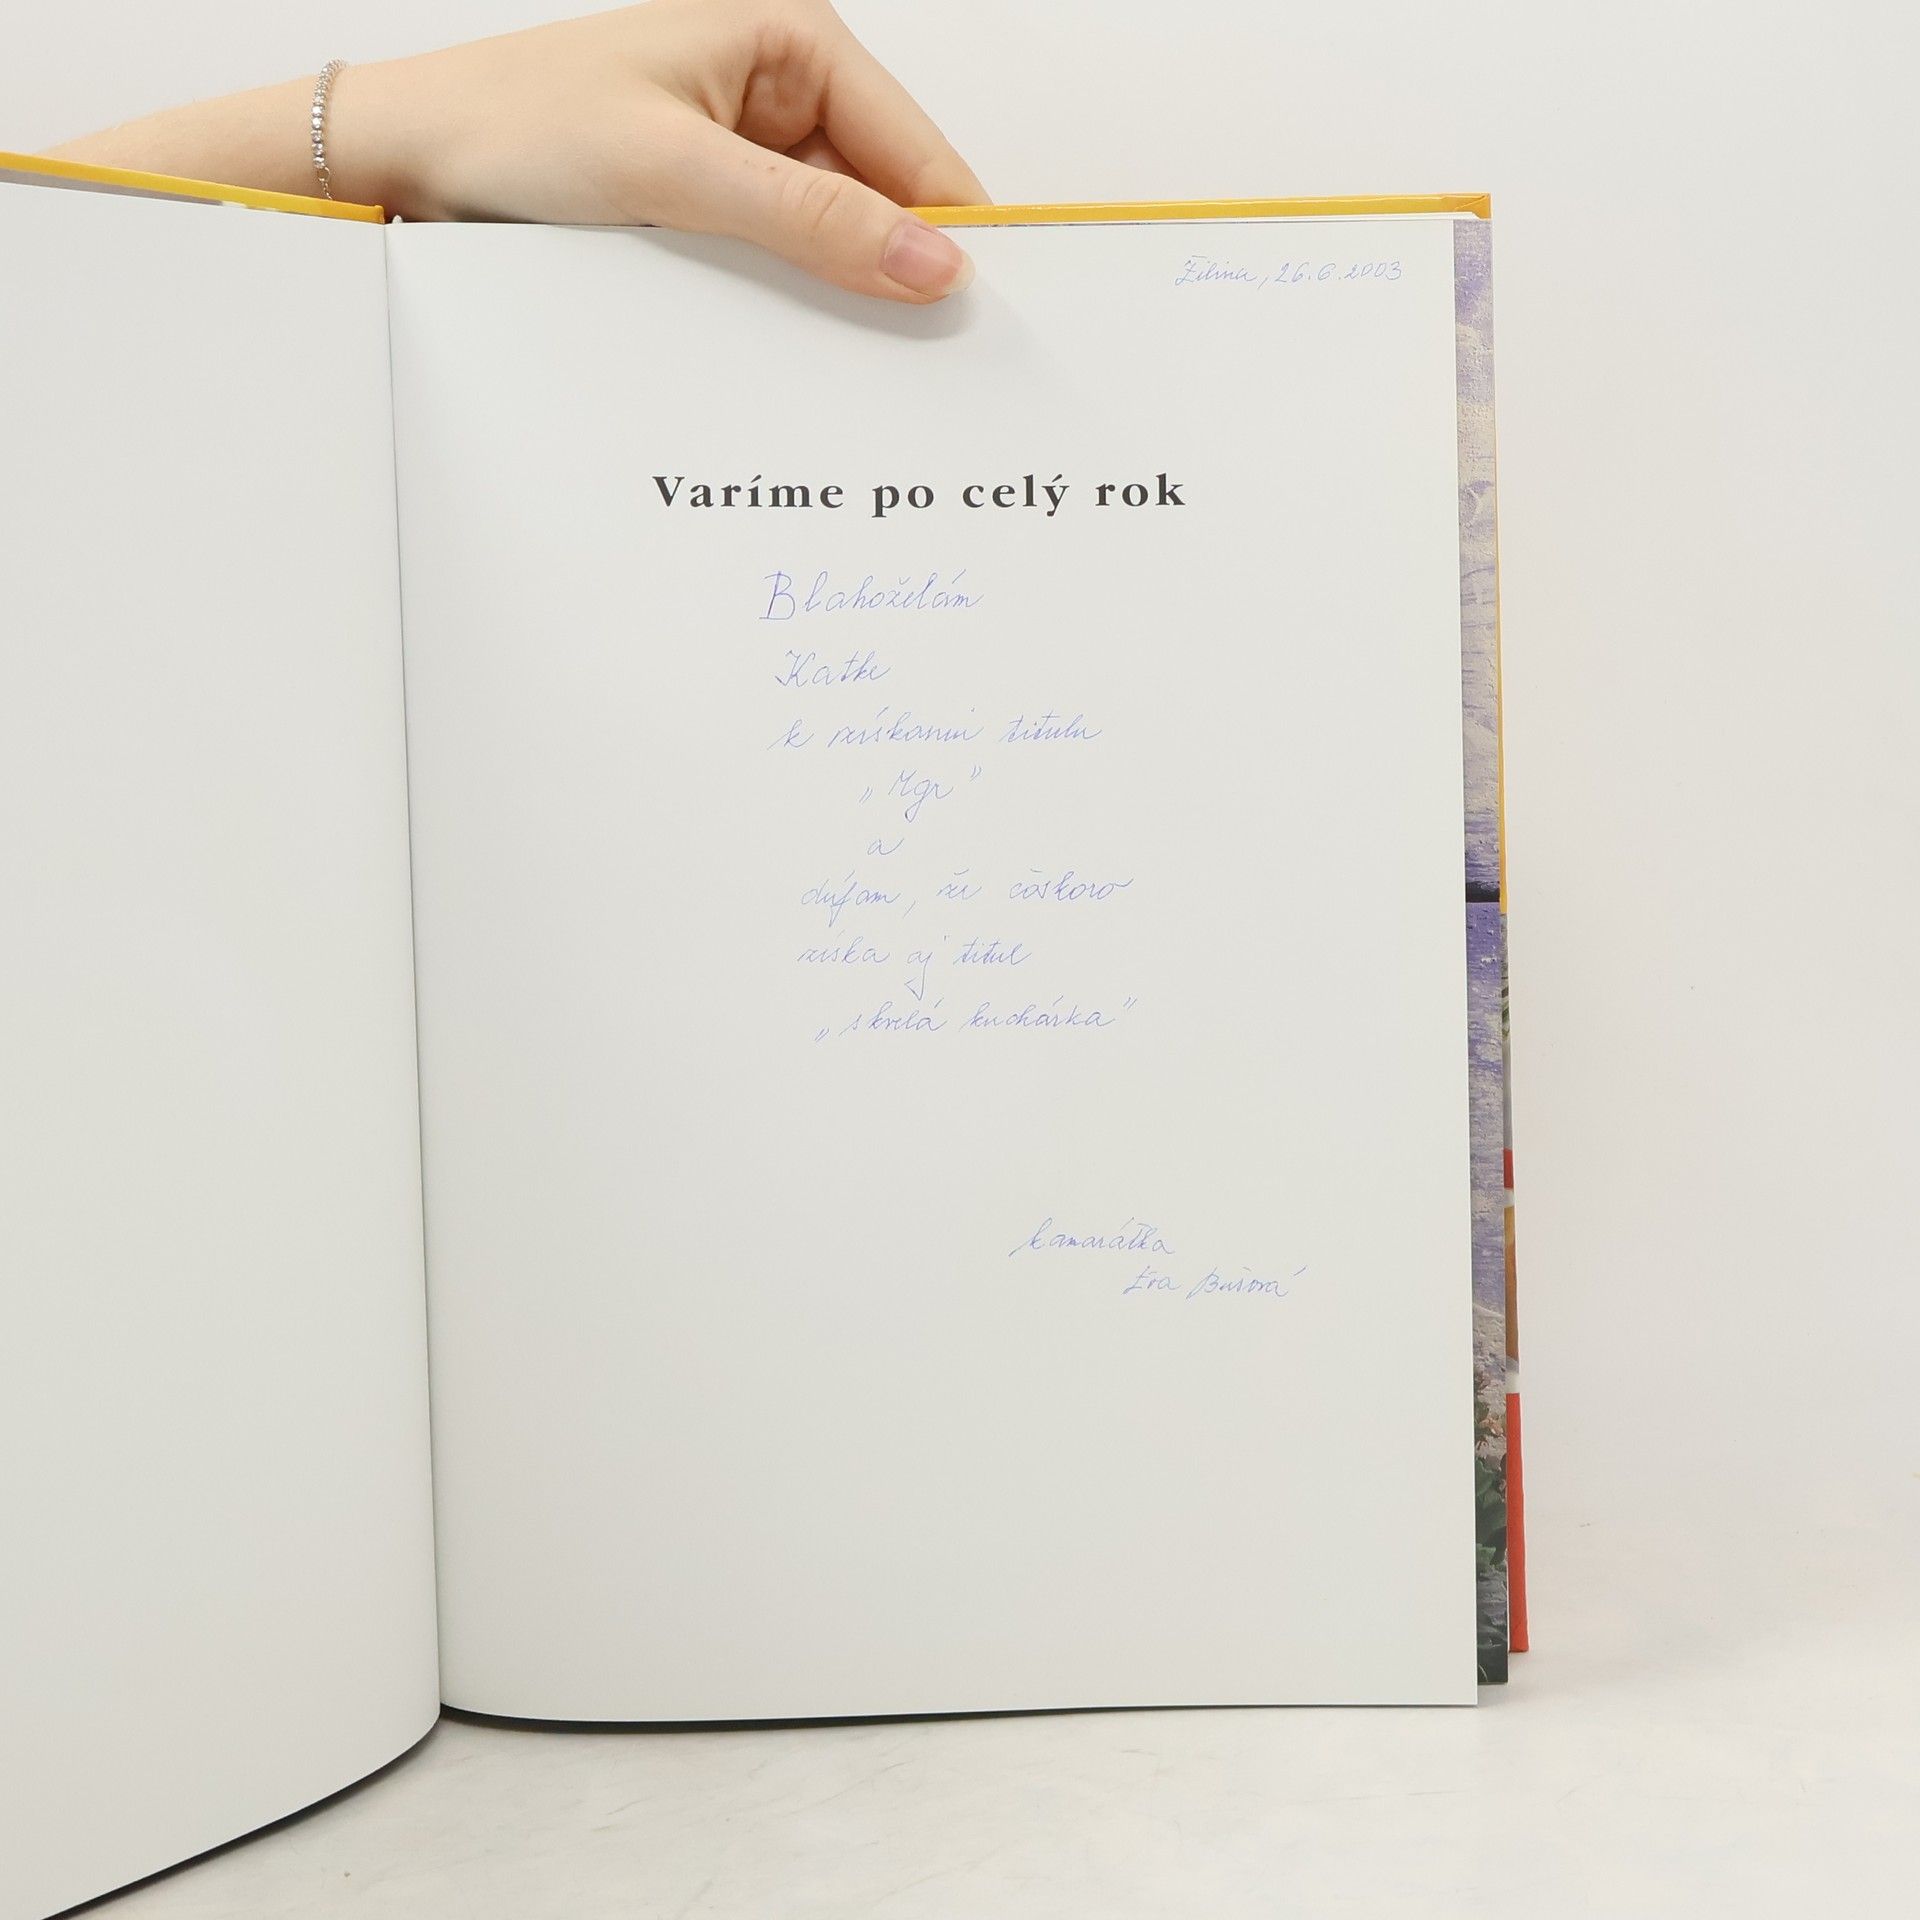 Žilina, 26.6.2003
Varíme po celý rok
Blahoželám
Katke
k získaniu titulu
„Mgr"
a
dúfam, že čoskoro
získa aj titul
„skvelá kuchárka"
kamarátka
Eva Bušová